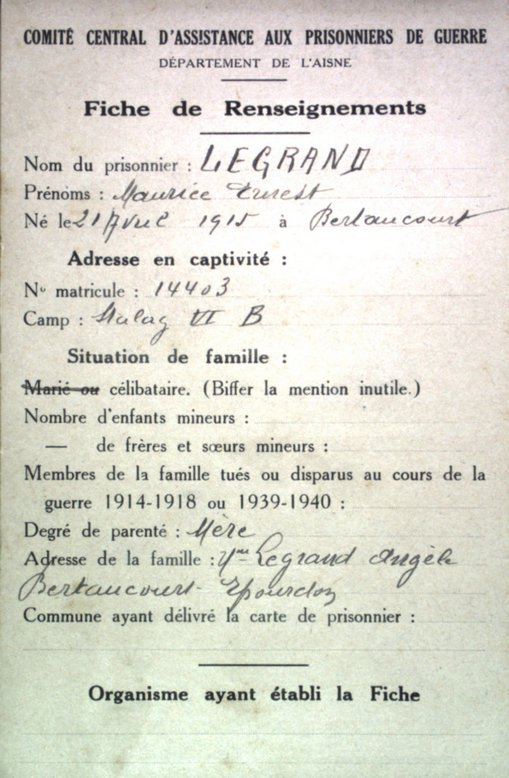 COMITÉ CENTRAL D'ASSISTANCE AUX PRISONNIERS DE GUERRE
DÉPARTEMENT DE L'AISNE
Fiche de Renseignements
Nom du prisonnier : LEGRAND
Prénoms : Maurice Ernest
Né le 21 Avril 1915 à Bertaucourt
Adresse en captivité :
No matricule : 14403
Camp : Stalag VI B
Situation de famille :
Marié ou célibataire. (Biffer la mention inutile.)
Nombre d'enfants mineurs :
— de frères et sœurs mineurs :
Membres de la famille tués ou disparus au cours de la
guerre 1914-1918 ou 1939-1940 :
Degré de parenté : Mère
Adresse de la famille : Mme Legrand Angèle
Bertaucourt-Epourdon
Commune ayant délivré la carte de prisonnier :
Organisme ayant établi la Fiche